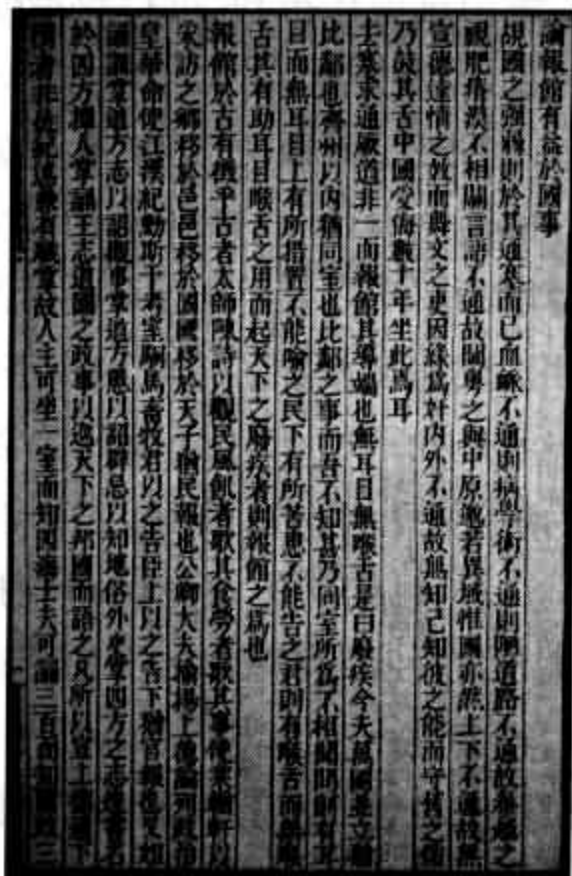 論報館有益於國事
覘國之強弱則於其通塞而已血脈不通則病學術不通則陋道路不通故秦越之
視肥瘠漠不相關言語不通故閩粵之與中原邈若異域惟國亦然上下不通故無
宣德達情之效而舞文之吏因緣為奸內外不通故無知己知彼之能而守舊之儒
乃鼓其舌中國受侮數十年坐此焉耳
去塞求通厥道非一而報館其導端也無耳目無喉舌是曰廢疾今夫萬國並立猶
比鄰也齊州以內猶同室也比鄰之事而吾不知甚乃同室所為不相聞問則有耳
目而無耳目上有所措置不能喻之民下有所苦患不能告之君則有喉舌而無喉
舌其有助耳目喉舌之用而起天下之廢疾者則報館之為也
報館於古有徵乎古者太師陳詩以觀民風飢者歌其食勞者歌其事使乘輶軒以
采訪之鄉移於邑邑移於國國移於天子猶民報也公卿大夫揄揚上德論列政治
皇華命使江漢紀勳斯干考室駉馬畜牧君以之告臣上以之告下猶官報也又如
誦訓掌道方志以詔觀事掌道方慝以詔辟忌以知地俗外史掌四方之志達書名
於四方撢人掌誦王志道國之政事以巡天下之邦國而語之凡所以宣上德通下
情者非徒紀述兼有職掌故人主可坐一室而知四海士夫可誦三百而知國政三